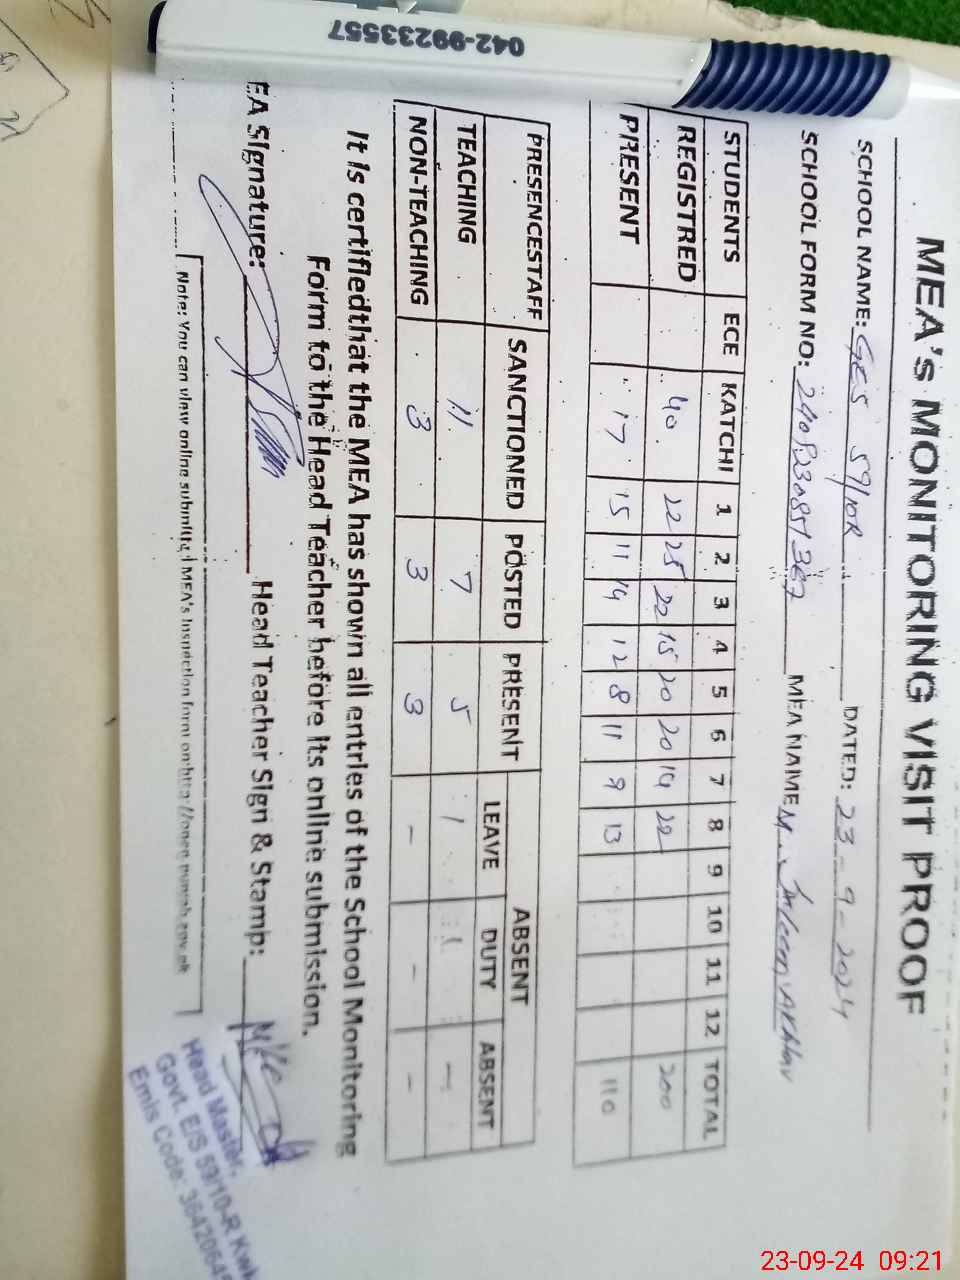 042-99233557
MEA's MONITORING VISIT PROOF
SCHOOL NAME: GES 59/10R DATED: 23-9-2024
SCHOOL FORM NO: MEA NAME M. Akhtar
STUDENTS ECE KATCHI 1 2 3 4 5 6 7 8 9 10 11 12 TOTAL
REGISTRED 40 22 25 22 15 20 20 14 22 200
PRESENT 17 15 11 14 12 8 11 9 13 110
PRESENCESTAFF SANCTIONED POSTED PRESENT ABSENT
LEAVE DUTY ABSENT
TEACHING 11 7 5 1 -
NON-TEACHING 3 3 3 - - -
It is certifiedthat the MEA has shown all entries of the School Monitoring
Form to the Head Teacher before its online submission.
EA Signature: Head Teacher Sign & Stamp:
Note: You can view online submitted MEA's Inspection form on:http://open.punjab.gov.pk
Head Master,
Govt. E/S 59/10-R
Emis Code: 3642064
23-09-24 09:21